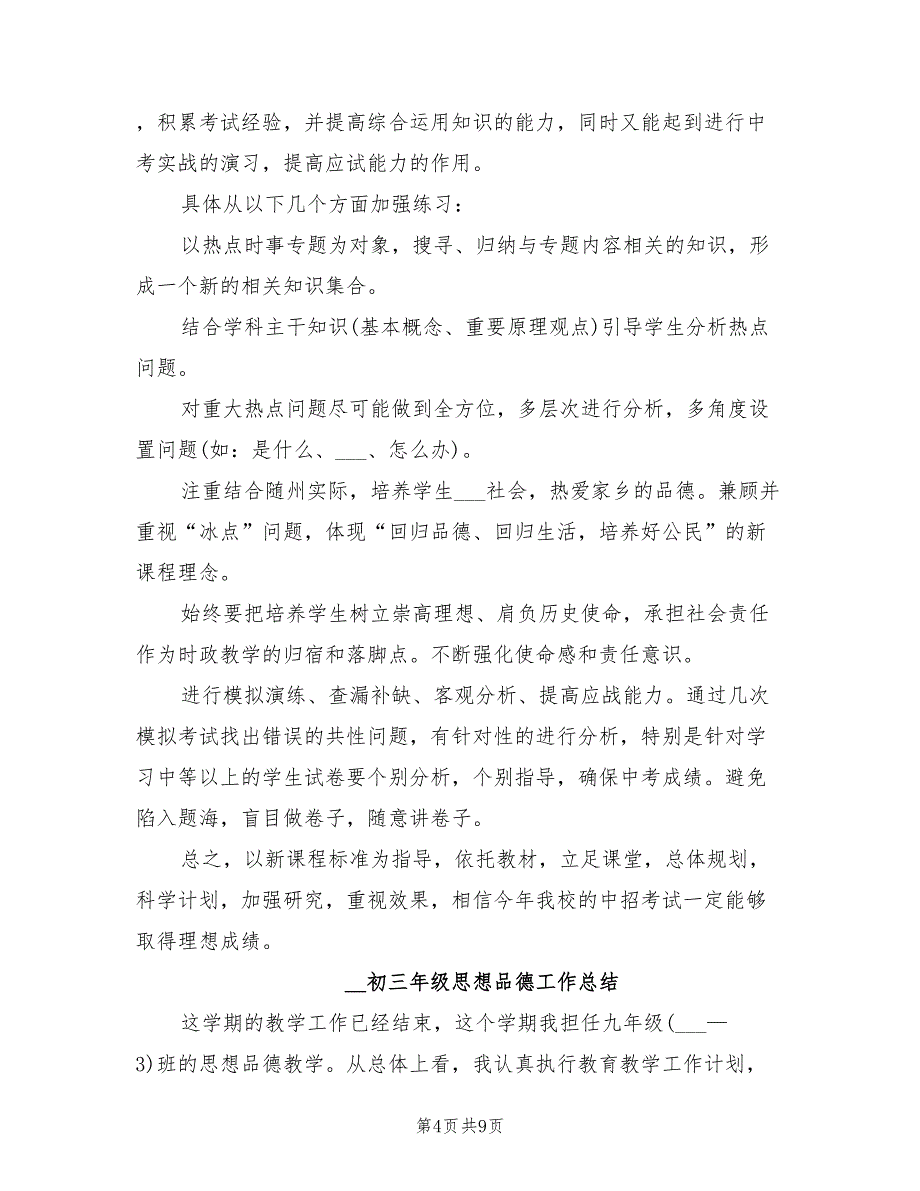 ，积累考试经验，并提高综合运用知识的能力，同时又能起到进行中
考实战的演习，提高应试能力的作用。
具体从以下几个方面加强练习：
以热点时事专题为对象，搜寻、归纳与专题内容相关的知识，形
成一个新的相关知识集合。
结合学科主干知识(基本概念、重要原理观点)引导学生分析热点
问题。
对重大热点问题尽可能做到全方位，多层次进行分析，多角度设
置问题(如：是什么、___、怎么办)。
注重结合随州实际，培养学生___社会，热爱家乡的品德。兼顾并
重视“冰点”问题，体现“回归品德、回归生活，培养好公民”的新
课程理念。
始终要把培养学生树立崇高理想、肩负历史使命，承担社会责任
作为时政教学的归宿和落脚点。不断强化使命感和责任意识。
进行模拟演练、查漏补缺、客观分析、提高应战能力。通过几次
模拟考试找出错误的共性问题，有针对性的进行分析，特别是针对学
习中等以上的学生试卷要个别分析，个别指导，确保中考成绩。避免
陷入题海，盲目做卷子，随意讲卷子。
总之，以新课程标准为指导，依托教材，立足课堂，总体规划，
科学计划，加强研究，重视效果，相信今年我校的中招考试一定能够
取得理想成绩。
__初三年级思想品德工作总结
这学期的教学工作已经结束，这个学期我担任九年级(___—
3)班的思想品德教学。从总体上看，我认真执行教育教学工作计划，
第4页共9页